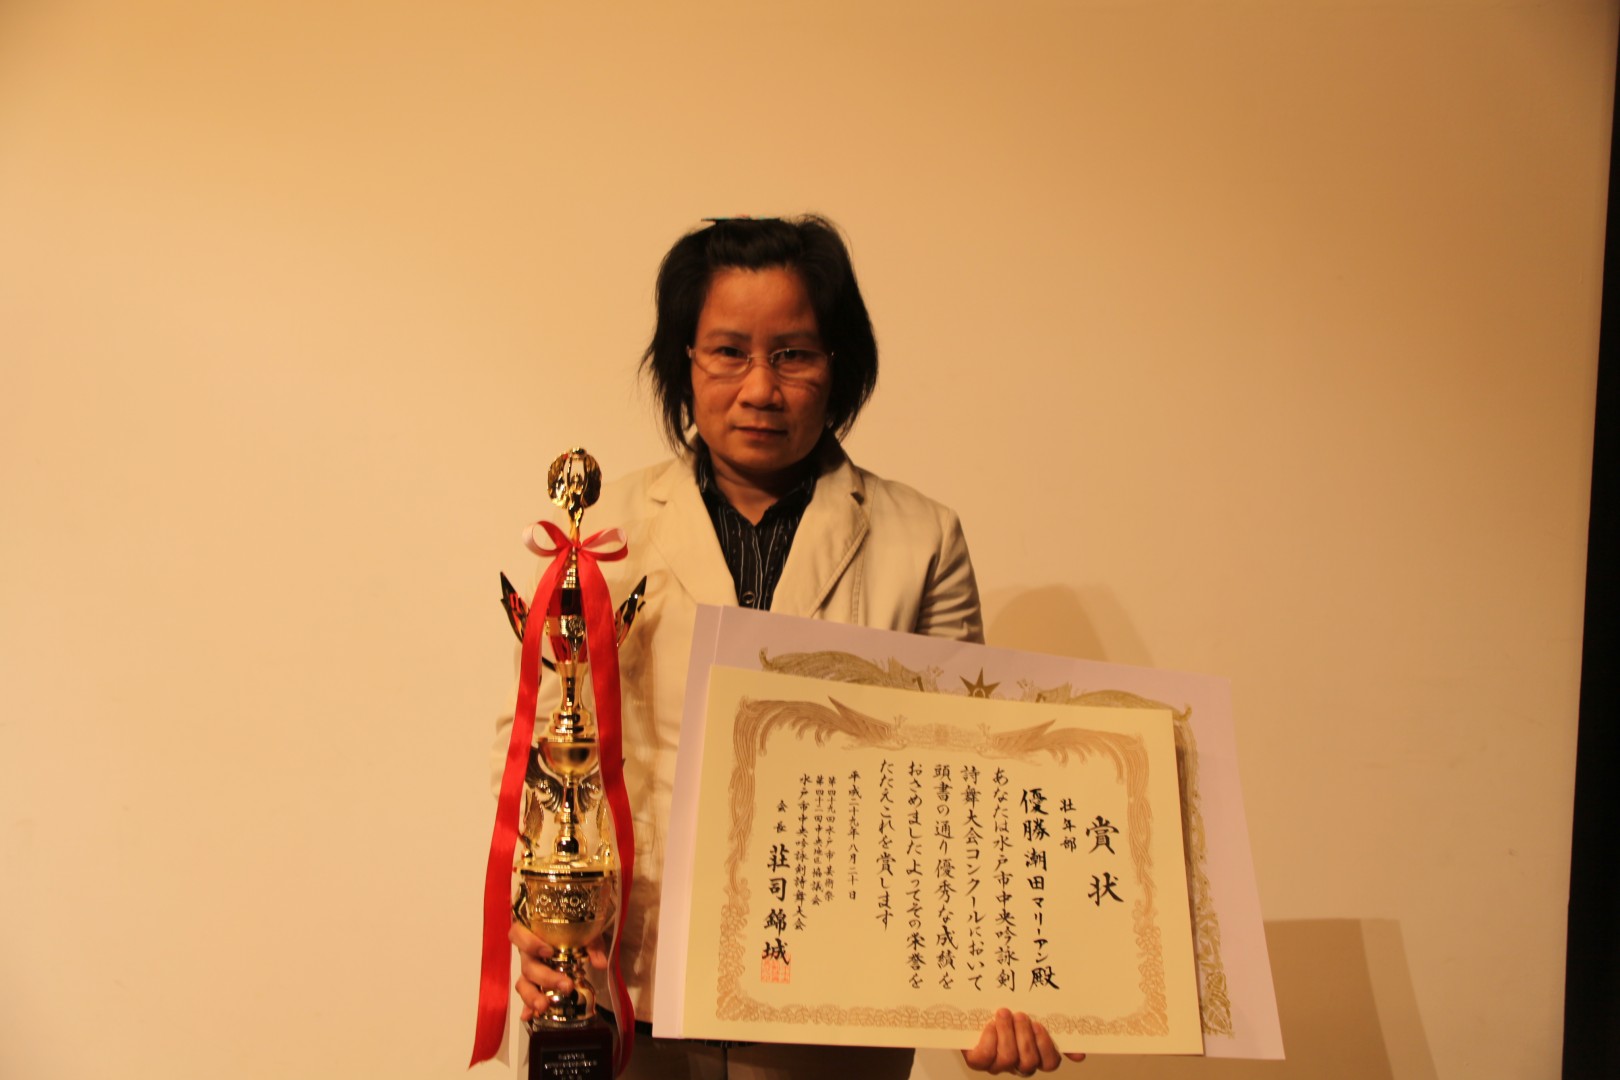 賞状
壮年部
優勝 潮田マリーアン殿
あなたは水戸市中央吟詠剣
詩舞大会コンクールにおいて
頭書の通り優秀な成績を
おさめましたよってその栄誉を
たたえこれを賞します
平成二十九年八月二十日
第四十九回水戸市芸術祭
第四十二回中央地区協議会
水戸市中央吟詠剣詩舞大会
会長 荘司錦城